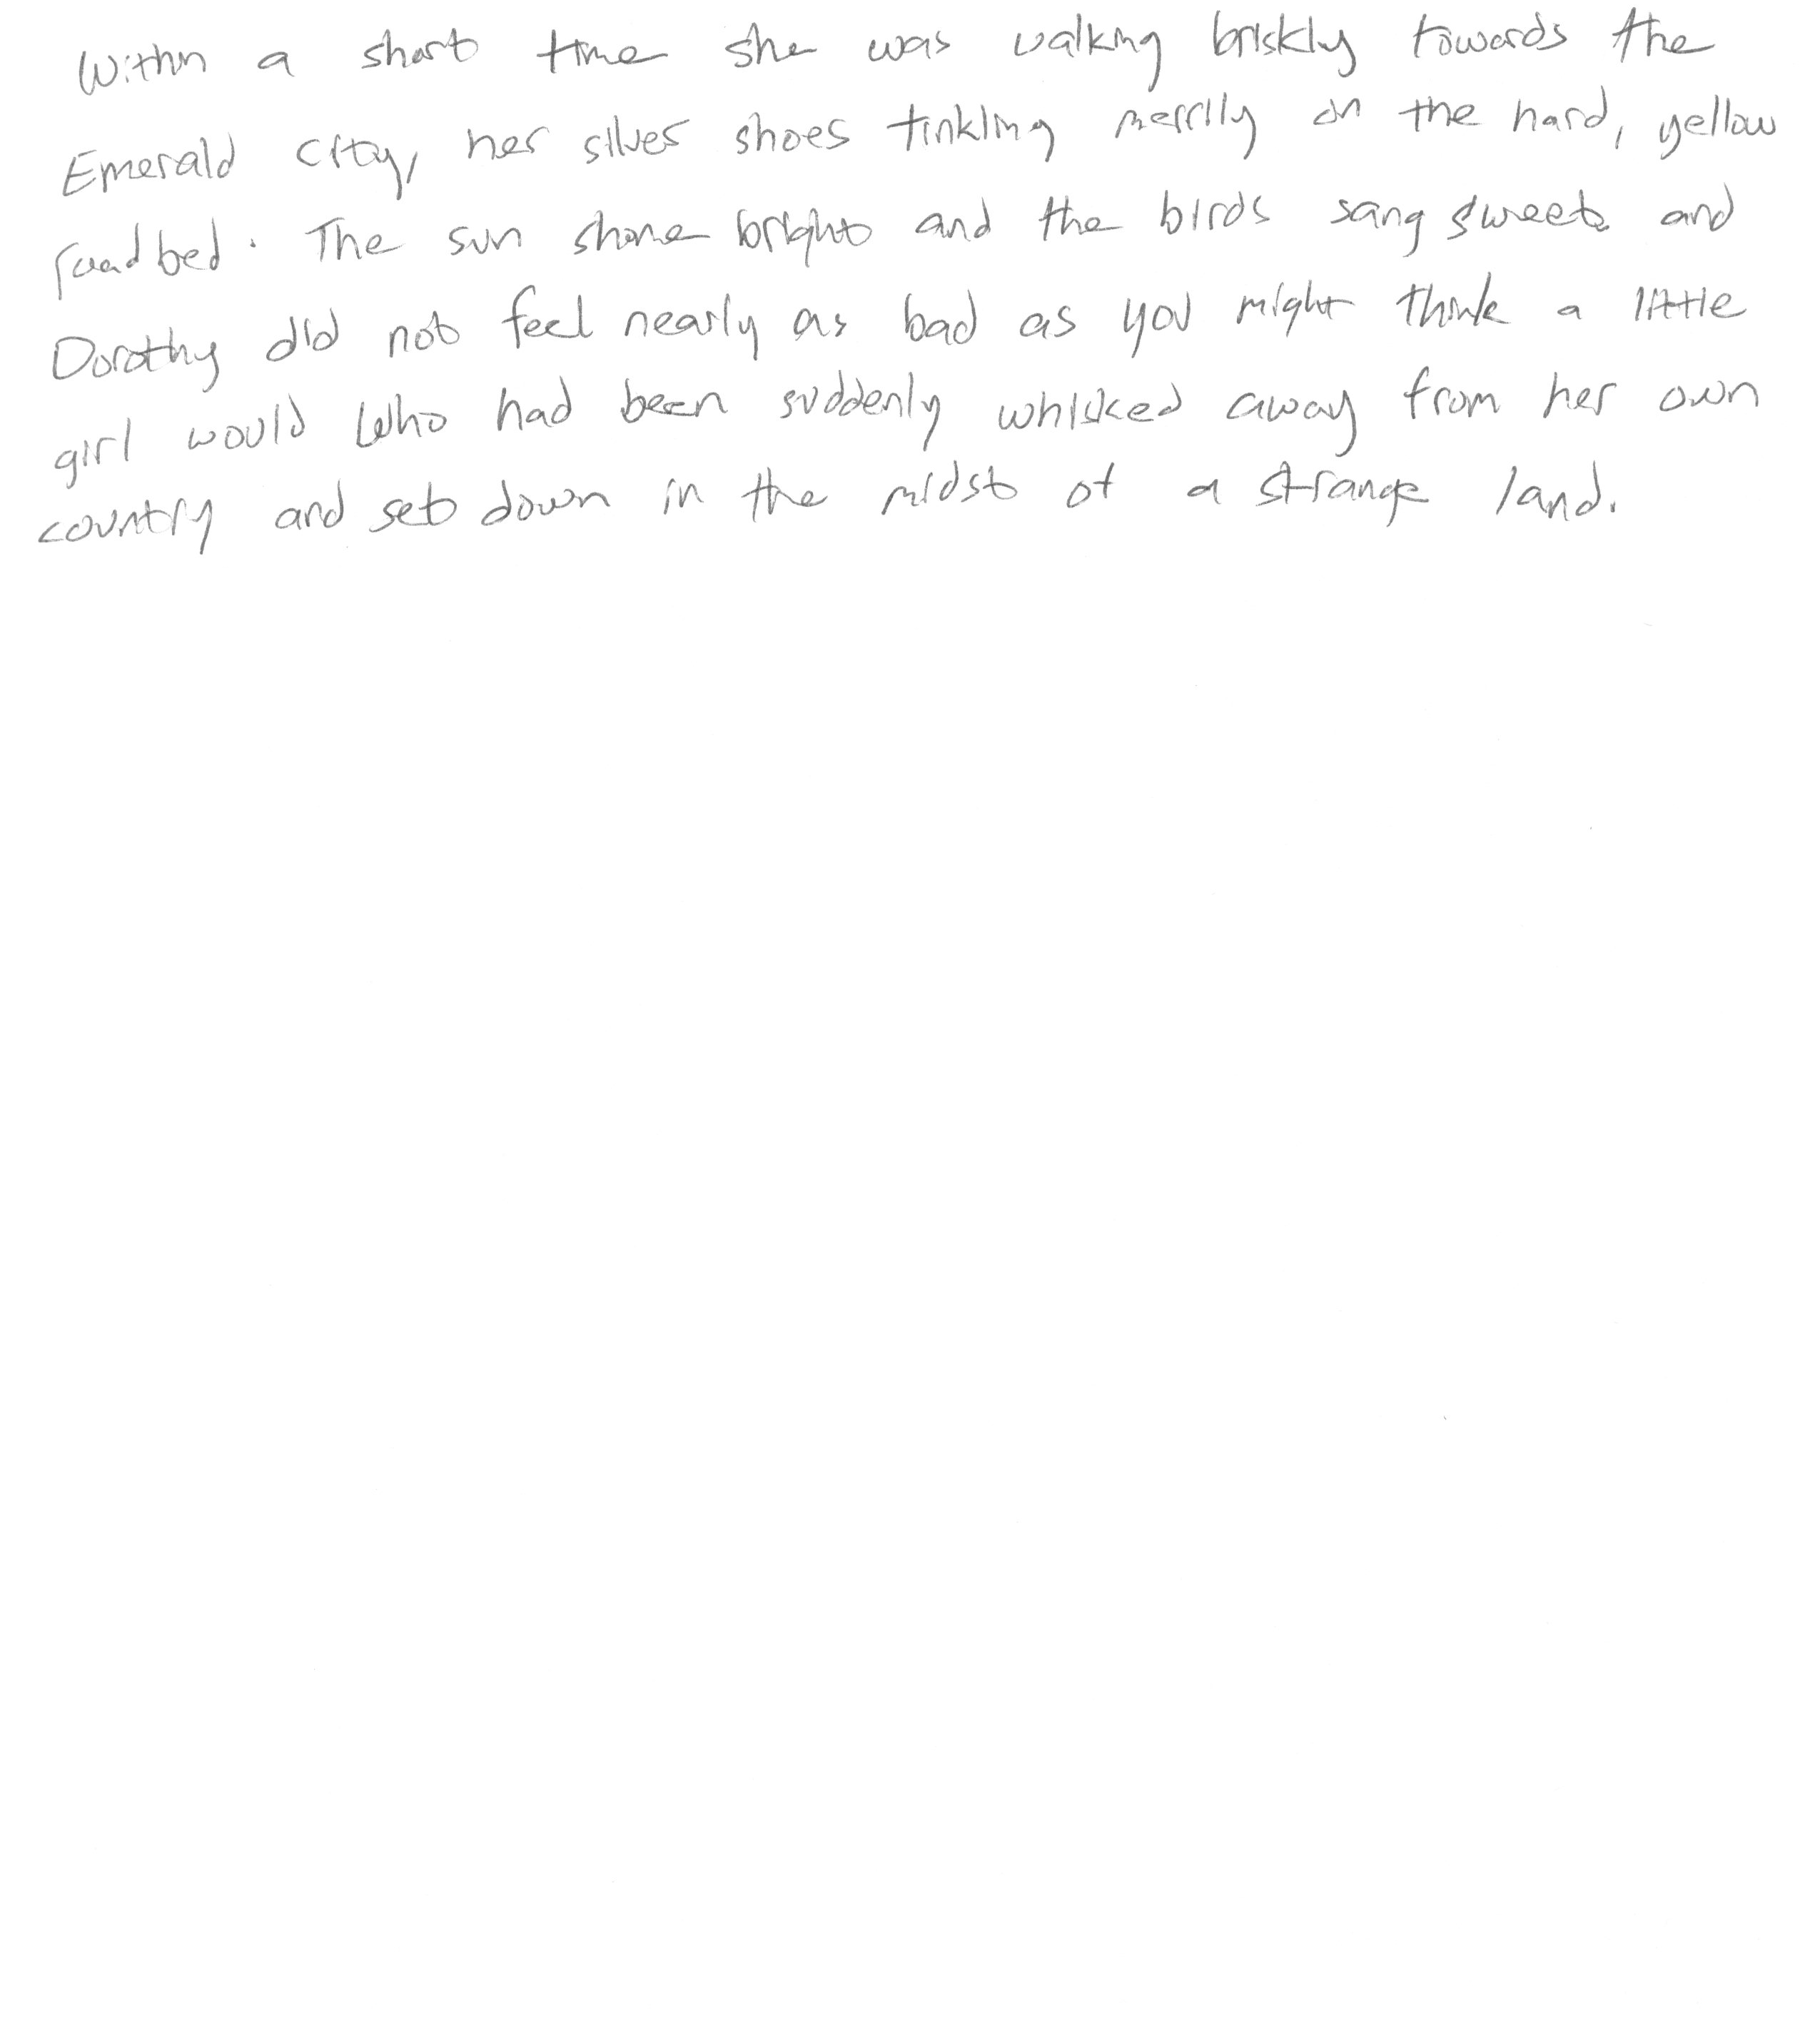 Within a short time she was walking briskly towards the
Emerald City, her silver shoes tinkling merrily on the hard, yellow
roadbed. The sun shone bright and the birds sang sweet and
Dorothy did not feel nearly as bad as you might think a little
girl would who had been suddenly whisked away from her own
country and set down in the midst of a strange land.